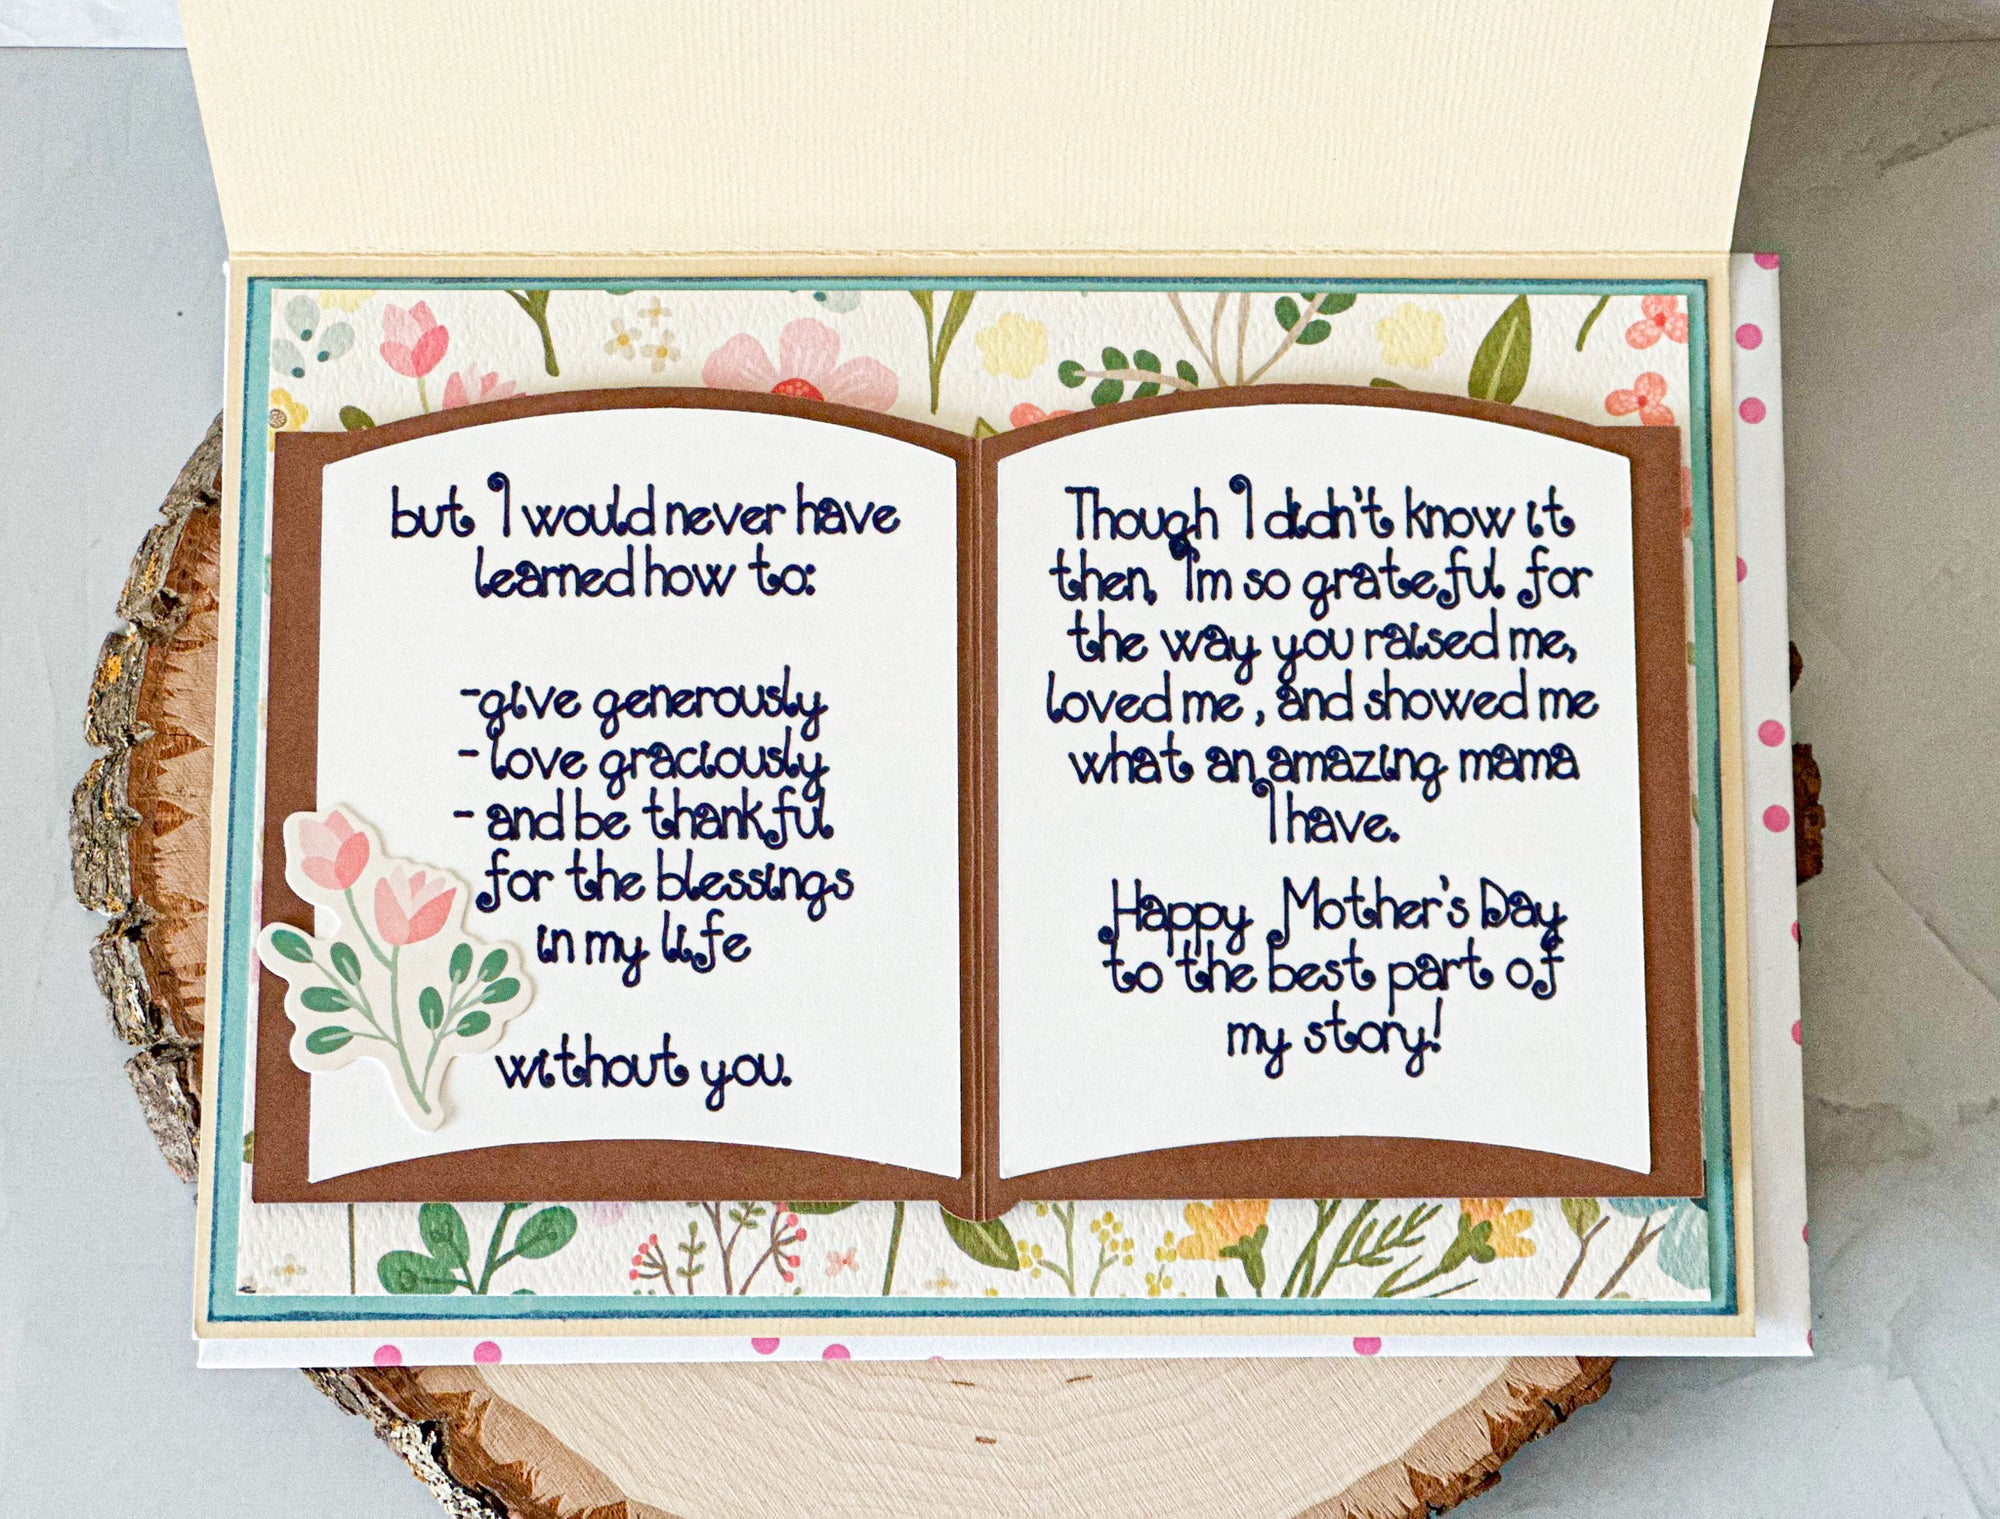 but I would never have
learned how to:
-give generously
- love graciously
- and be thankful
for the blessings
in my life
without you.
Though I didn't know it
then, I'm so grateful for
the way you raised me,
loved me , and showed me
what an amazing mama
I have.
Happy Mother's Day
to the best part of
my story!